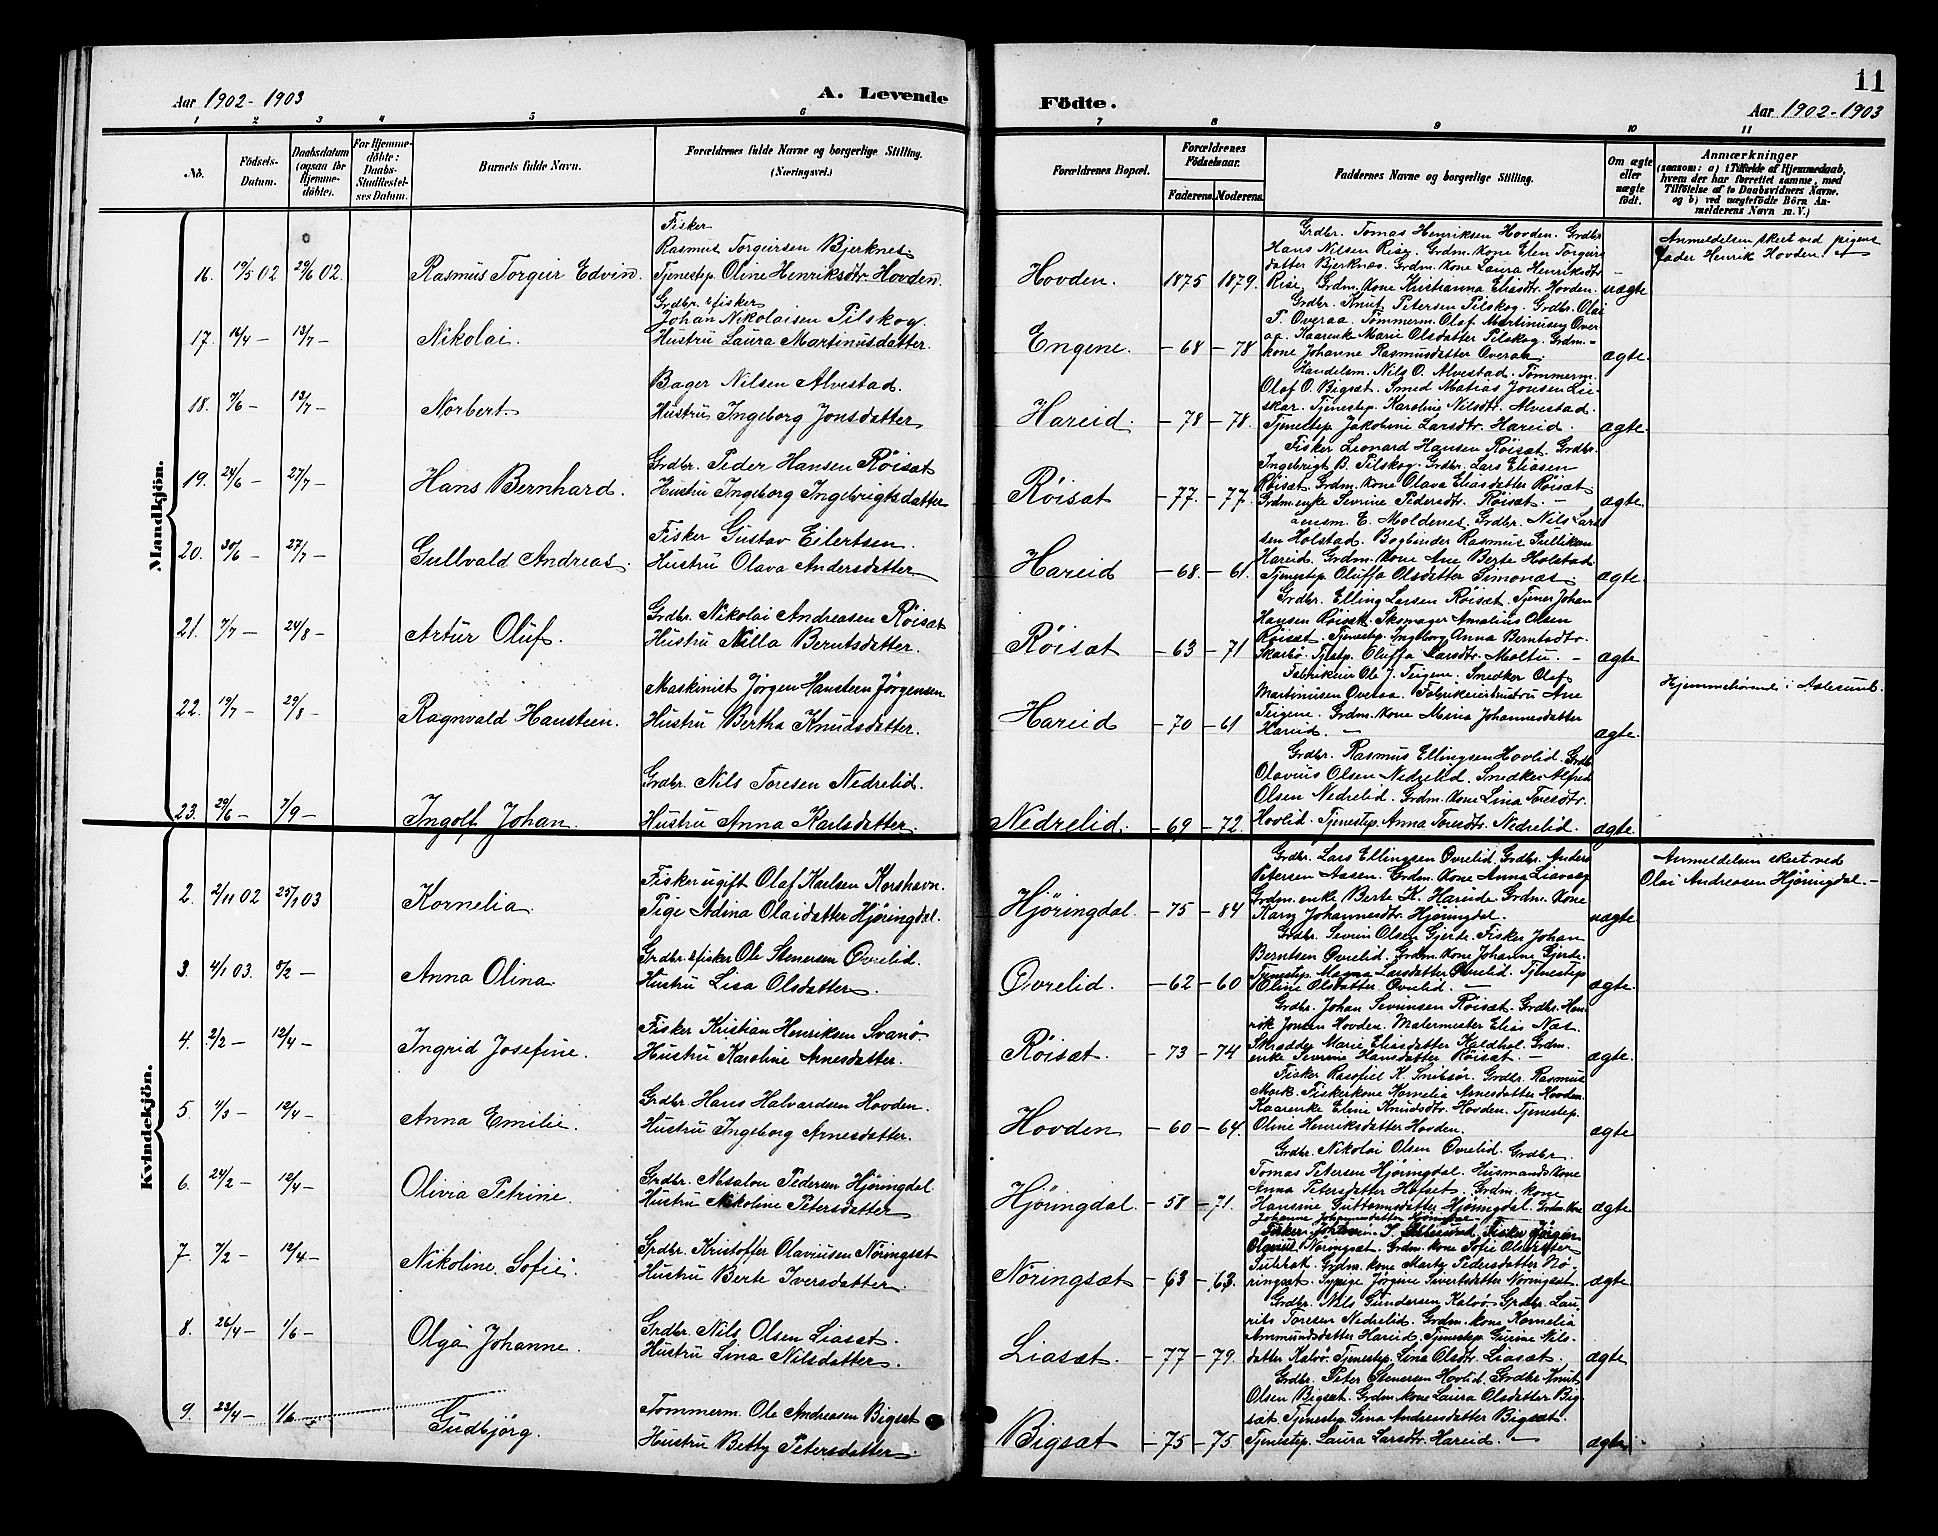 11
Aar 1902-1903
A. Levende
Födte.
Aar 1902-1903
1 2 3 4 5 6 7 8 9 10 11
No.
Födsels-Datum.
Daabsdatum (ogsaa for Hjemmedöbte).
For Hjemmedöbte: Daabs-Stadfæstelses Datum.
Barnets fulde Navn.
Forældrenes fulde Navne og borgerlige Stilling. (Næringsvei.)
Forældrenes Bopæl.
Forældrenes Födselsaar.
Faderens. Moderens.
Faddernes Navne og borgerlige Stilling.
Om ægte eller uægte födt.
Anmærkninger
(saasom: a) i Tilfælde af Hjemmedaab, hvem der har forrettet samme, med Tilföielse af to Daabsvidners Navne, og b) ved uægtefödte Börn Anmelderens Navn m. V.)
Mandkjön.
Fisker
Rasmus Torgersen Bjerknes
16. 19/5 02 29/6 02. Rasmus Torgeir Edvin. Tjenestep. Oline Henriksdtr. Hovden. Hovden. 1875 1879.
Grdbr. Tomas Henriksen Hovden. Grdbr
Hans Nilsen Rise. Grdm. kone Elen Torgeirs
datter Bjerknes. Grdm. kone Laura Henriksdtr
Rise. Grdm. kone Kristianna Eliasdtr. Hovden. uægte
Anmeldelsen skeet ved pigens
fader Henrik Hovden.
Grdbr. & fisker
Johan Nikolaisen Pilskog.
17. 14/4 — 13/7 — Nikolai. Hustru Laura Martinusdatter. Engene. — 68 — 78
Grdbr. Knut Petersen Pilskog. Grdbr. Olai
P. Overaa. Tømmerm. Olaf Martinusen Over
aa. Kaarenke Marie Olsdatter Pilskog. Grdm.
kone Johanne Rasmusdatter Overaa. ægte.
Bager Nilsen Alvestad.
18. 7/6 — 13/7 — Norbert. Hustru Ingeborg Jonsdatter Hareid. — 78 — 78.
Handelsm. Nils O. Alvestad. Tømmerm.
Olaf O. Bigsæt. Smed Matias Jonsen Lie-
skar. Tjenestep. Karoline Nilsdtr. Alvestad.
Tjenestep. Jakobine Larsdtr. Hareid. ægte.
Grdbr. Peder Hansen Röisæt
19. 24/6 — 27/7 — Hans Bernhard. Hustru Ingeborg Ingebrigtsdatter Röisæt — 77. — 77.
Fisker Leonard Hansen Röisæt. Grdbr.
Ingebrigt B. Pilskog. Grdbr. Lars Eliasen
Röisæt. Grdm. kone Olava Eliasdatter Röisæt
Grdm. enke Sevrine Pedersdtr. Röisæt. — ægte
Fisker Gustav Eilertsen.
20. 30/6 — 27/7 — Gullvald Andreas. Hustru Olava Andersdatter Hareid — 68. — 61.
Lensm. E. Moldenes. Grdbr. Nils Lars
sen Holstad. Bogbinder Rasmus Gulliksen
Hareid. Grdm. kone Ane Berte Holstad
Tjenestep. Oluffa Olsdatter Simonas. ægte
Grdbr. Nikolai Andreasen Röisæt
21. 7/7 — 24/8 — Artur Oluf. Hustru Nilla Berntsdatter. Röisæt — 63 — 71
Grdbr. Elling Larsen Röisæt. Tjener Johan
Hansen Röisæt. Skomager Amalius Olsen
Röisæt. Tjenestep. Ingeborg Anna Berntsdtr.
Skarbö. Tjenstp. Oluffa Larsdtr. Moltu. — ægte
Maskinist Jörgen Hansteen Jörgensen
22. 19/7 — 29/8 — Ragnvald Hanstein. Hustru Bertha Knudsdatter. Hareid — 70 — 61
Fabrikeier Ole J. Teigene. Smedker Olaf
Martinusen Overaa. Fabrikeierhustru Ane
Teigene. Grdm. kone Mina Johannesdatter
Hareid. — ægte.
Hjemmehørende i Aalesund.
Grdbr. Nils Toresen Nedrelid.
23. 29/6 — 7/9 — Ingolf Johan. Hustru Anna Karlsdatter. Nedrelid. — 69 — 72.
Grdbr. Rasmus Ellingsen Hovlid. Grdb
Olavius Olsen Nedrelid. Snedker Alfred
Olsen Nedrelid. Grdm. kone Lina Toresdtr.
Hovlid. Tjenestep. Anna Toresdtr. Nedrelid. ægte
Kvindekjön.
Fisker ugift Olaf Karlsen Korshavn.
2. 2/11 02 25/1 03 Kornelia. Pige Adina Olaidatter Hjöringdal. Hjöringdal. — 75 — 84
Grdbr. Lars Ellingsen Övrelid. Grdbr. Anders
Petersen Aasen. Grdm. kone Anna Liavaag
Grdm. enke Berte K. Hareide. Grdm. kone
Karn Johannesdtr. Hjöringdal. uægte
Anmeldelsen skeet ved
Olai Andreasen Hjöringdal. —
Grdbr. & fisker Ole Stenersen Övrelid.
3. 4/1 03. 8/2 — Anna Olina. Hustru Lisa Olsdatter. Övrelid. — 62 — 60
Grdbr. Sevrin Olsen Gjerde. Fisker Johan
Berntsen Övrelid. Grdm. kone Johanne Gjerde.
Tjenestep. Magna Larsdatter Övrelid. Tjenestep
Oline Olsdatter Övrelid. — ægte.
Fisker Kristian Henriksen Svanö
4. 2/2 — 12/4 — Ingrid Josefine. Hustru Karoline Arnesdatter. Röisæt. — 73 — 74
Grdbr. Johan Sevrinsen Röisæt. Grdbr. Hen
rik Jonsen Hovden. Malermester Elias Næs.
Skrædder Marie Eliasdatter Kaldhol. Grdm.
enke Sevrine Hansdatter Röisæt. — ægte.
Grdbr. Hans Halvardsen Hovden.
5 4/3 — 12/4 — Anna Emilie. Hustru Ingeborg Arnesdatter. Hovden — 60 — 64.
Fisker Rasofiel K. Snibsör. Grdbr. Rasmus
Mork. Fiskerkone Kornelia Arnesdatter Hovden.
Kaarenke Elene Knudsdtr. Hovden. Tjenestep.
Oline Henriksdatter Hovden. ægte
Grdbr. Absalon Pedersen Hjöringdal
6. 24/2 — 12/4 — Olivia Petrine. Hustru Nikoline Petersdatter Hjöringdal. — 58 — 71.
Grdbr. Nikolai Olsen Övrelid. Grdbr.
Tomas Petersen Hjöringdal. Husmandskone
Anna Petersdatter Hofset. Grdm. kone
Hansine Guttormsdatter Hjöringdal. Grdm. kone
Johanne Johannesdatter ægte
Grdbr. Kristoffer Olaviusen Nöringsæt
7. 7/2 — 12/4 — Nikoline Sofie. Hustru Berte Iversdatter. Nöringsæt — 63 — 63.
Fisker Fisker Jörgen
Olavius. Nöringsæt. Grdm. kone Sofie Olsdatter
Sulebak. Grdm. kone Marte Pedersdatter Nö-
ringsæt. Sypige Jörgine Sivertsdatter Nöringsæt. ægte
Grdbr. Nils Olsen Liasæt.
8. 26/4 — 1/6 — Olga Johanne. Hustru Lina Nilsdatter. Liasæt. — 77 — 79.
Grdbr. Nils Gundersen Kalvö. Grdbr. Lau
rits Toresen Nedrelid. Grdm. kone Kornelia
Ammundsdatter Hareid. Tjenestep. Gurine Nils-
datter Kalvö. Tjenestep. Lina Olsdtr. Liasæt. ægte
Tømmerm. Ole Andreasen Bigsæt
9. 23/4 — 1/6 Gudbjörg. Hustru Betty Petersdatter. Bigsæt — 75 — 75.
Grdbr. Peter Stenersen Hovlid. Grdbr Knut
Olsen Bigsæt. Grdm. kone Laura Olsdatter Big
sæt. Tjenestep. Gina Andreasdatter Bigsæt.
Tjenestep. Laura Larsdtr. Hareid. — ægte